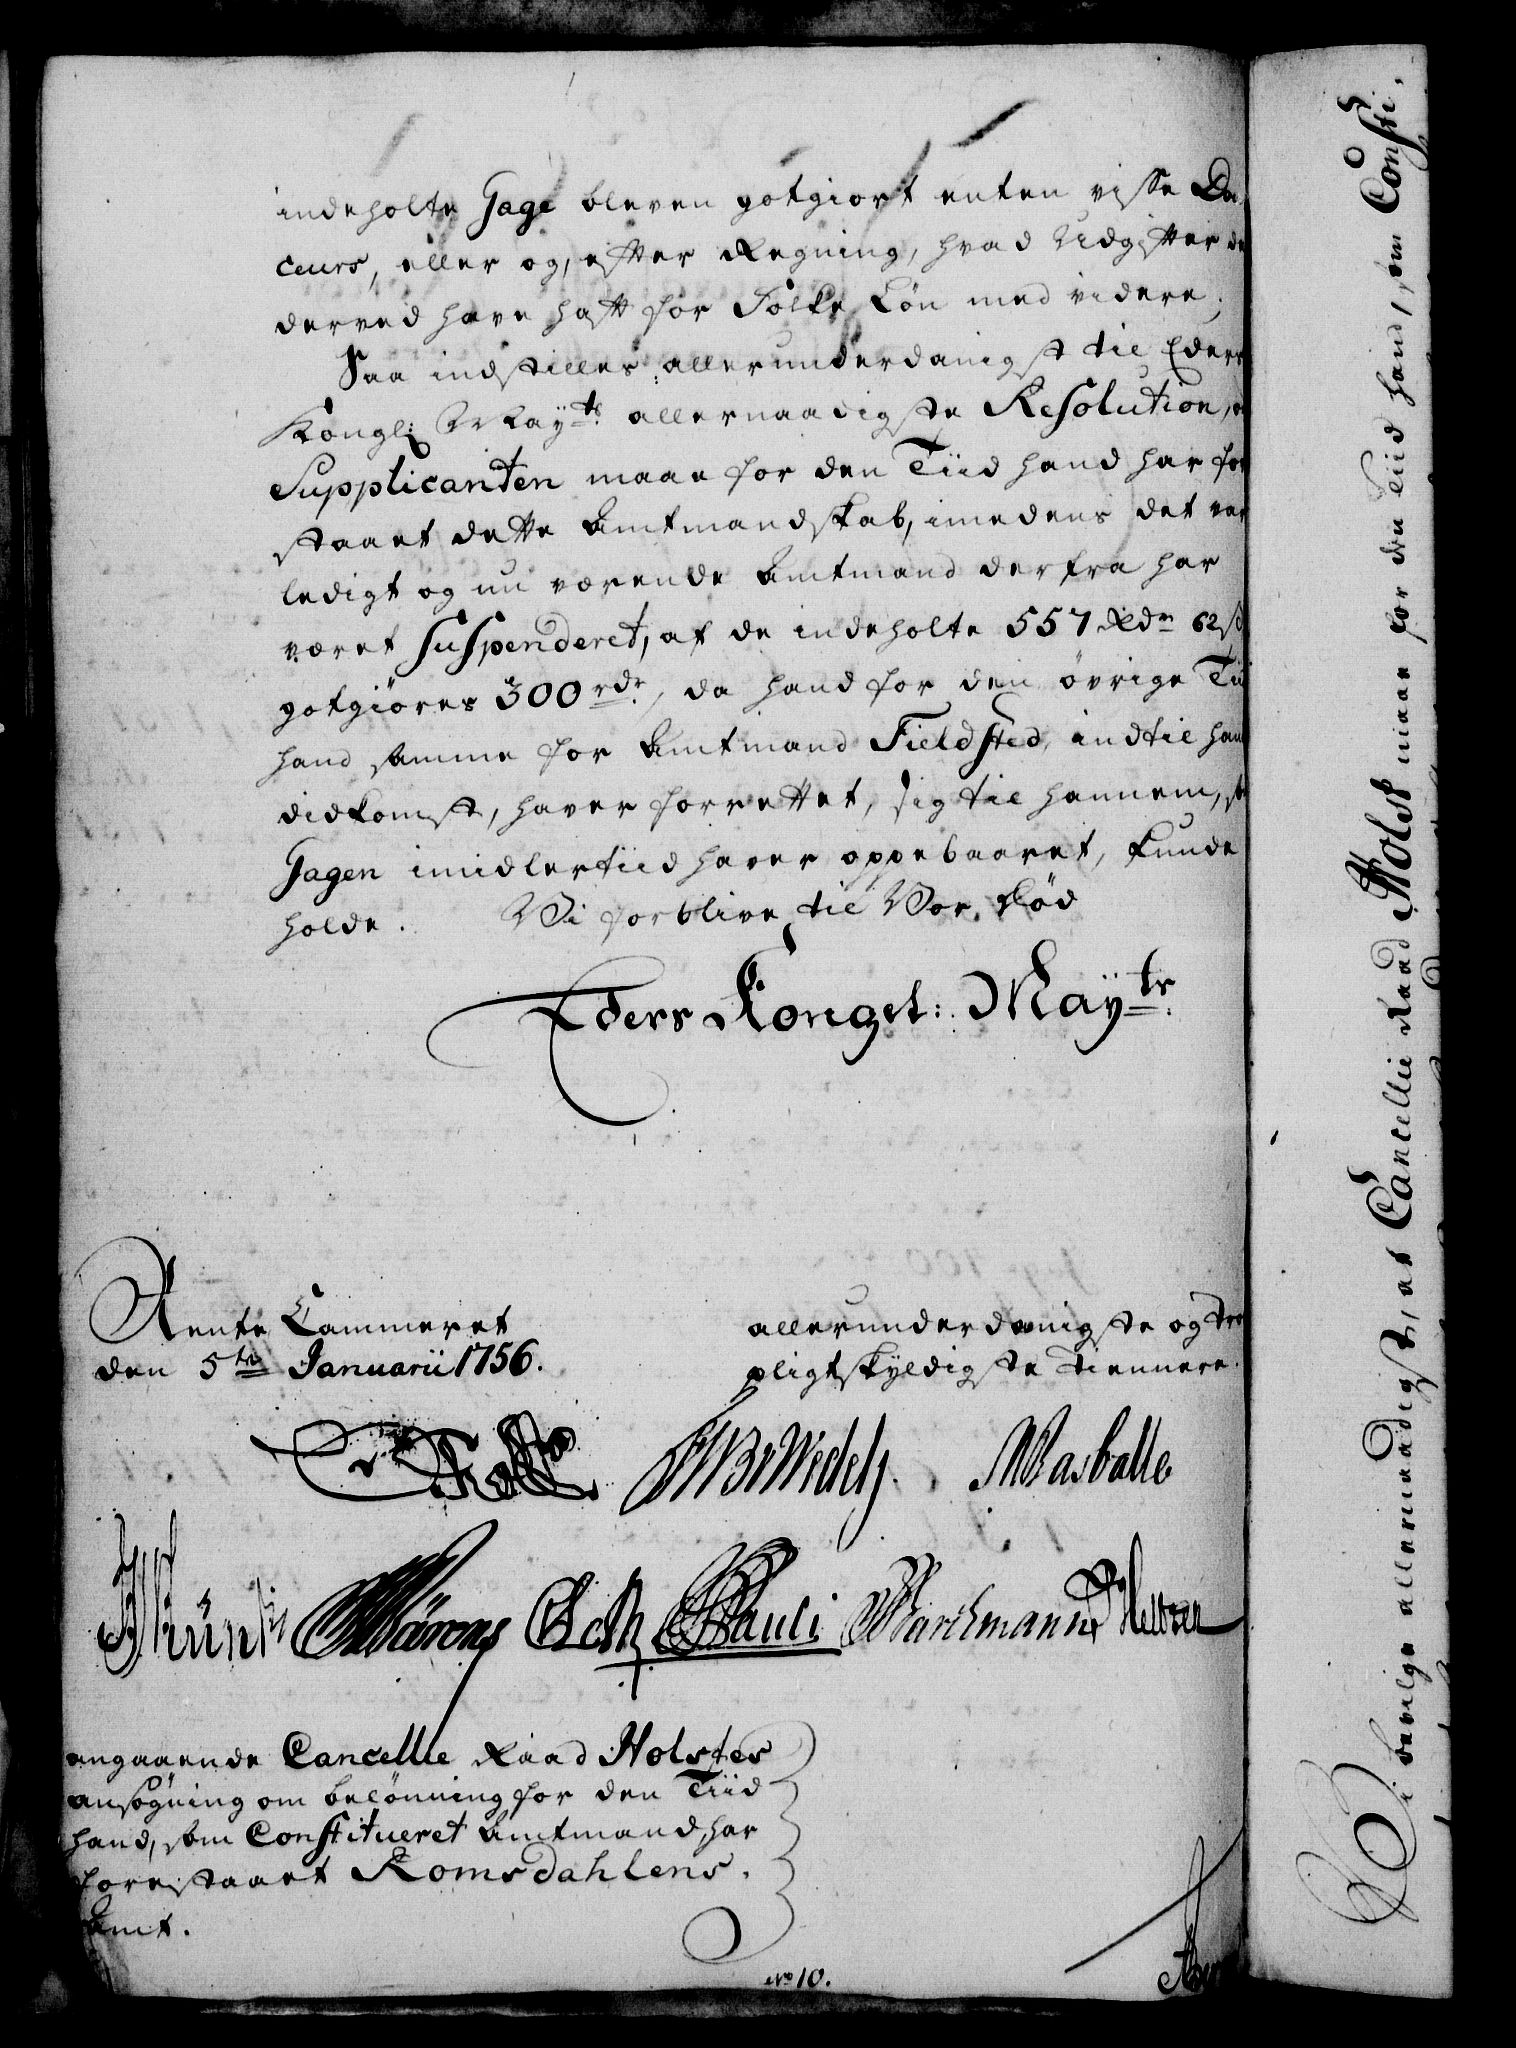 indeholte Gage bleven gotgiort enten visse Dou
ceurs, eller og, efter Regning, hvad Udgifter de
derved have haft for Folke Løn med videre;
Saa indstilles allerunderdanigst til Eders
Kongl: Mayts: allernaadigste Resolution,
Supplicanten maae for den Tiid hand har for
staaet dette Amtmandskab, imedens det var
ledigt og nu værende Amtmand derfra har
været Suspenderet, af de indeholte 557 Rdr 62 s
gotgiøres 300 rdr, da hand for den øvrige Tii
hand samme for Amtmand Fieldsted, indtil hans
didkomst, haver forrettet, sig til hannem, s
Gagen imidlertiid haver oppebaaret, kunde
holde. Wi forblive til Vor Død
Eders Kongel: Mayts:
Rente Cammeret
den 5te Januarii 1756.
allerunderdanigste og tro
pligtskyldigste Tiennere.
Wedely. Masballe
Pauli Marckmann
angaaende Cancellie Raad Holstes
ansøgning om belønning for den Tiid
hand, som Constitueret Amtmand, har
forestaaet Romsdahlens
Amt.
No 10.
Wi bevilge allernaadigst, at Cancellie Raad Holst maae for den Tiid hand, som Consti-